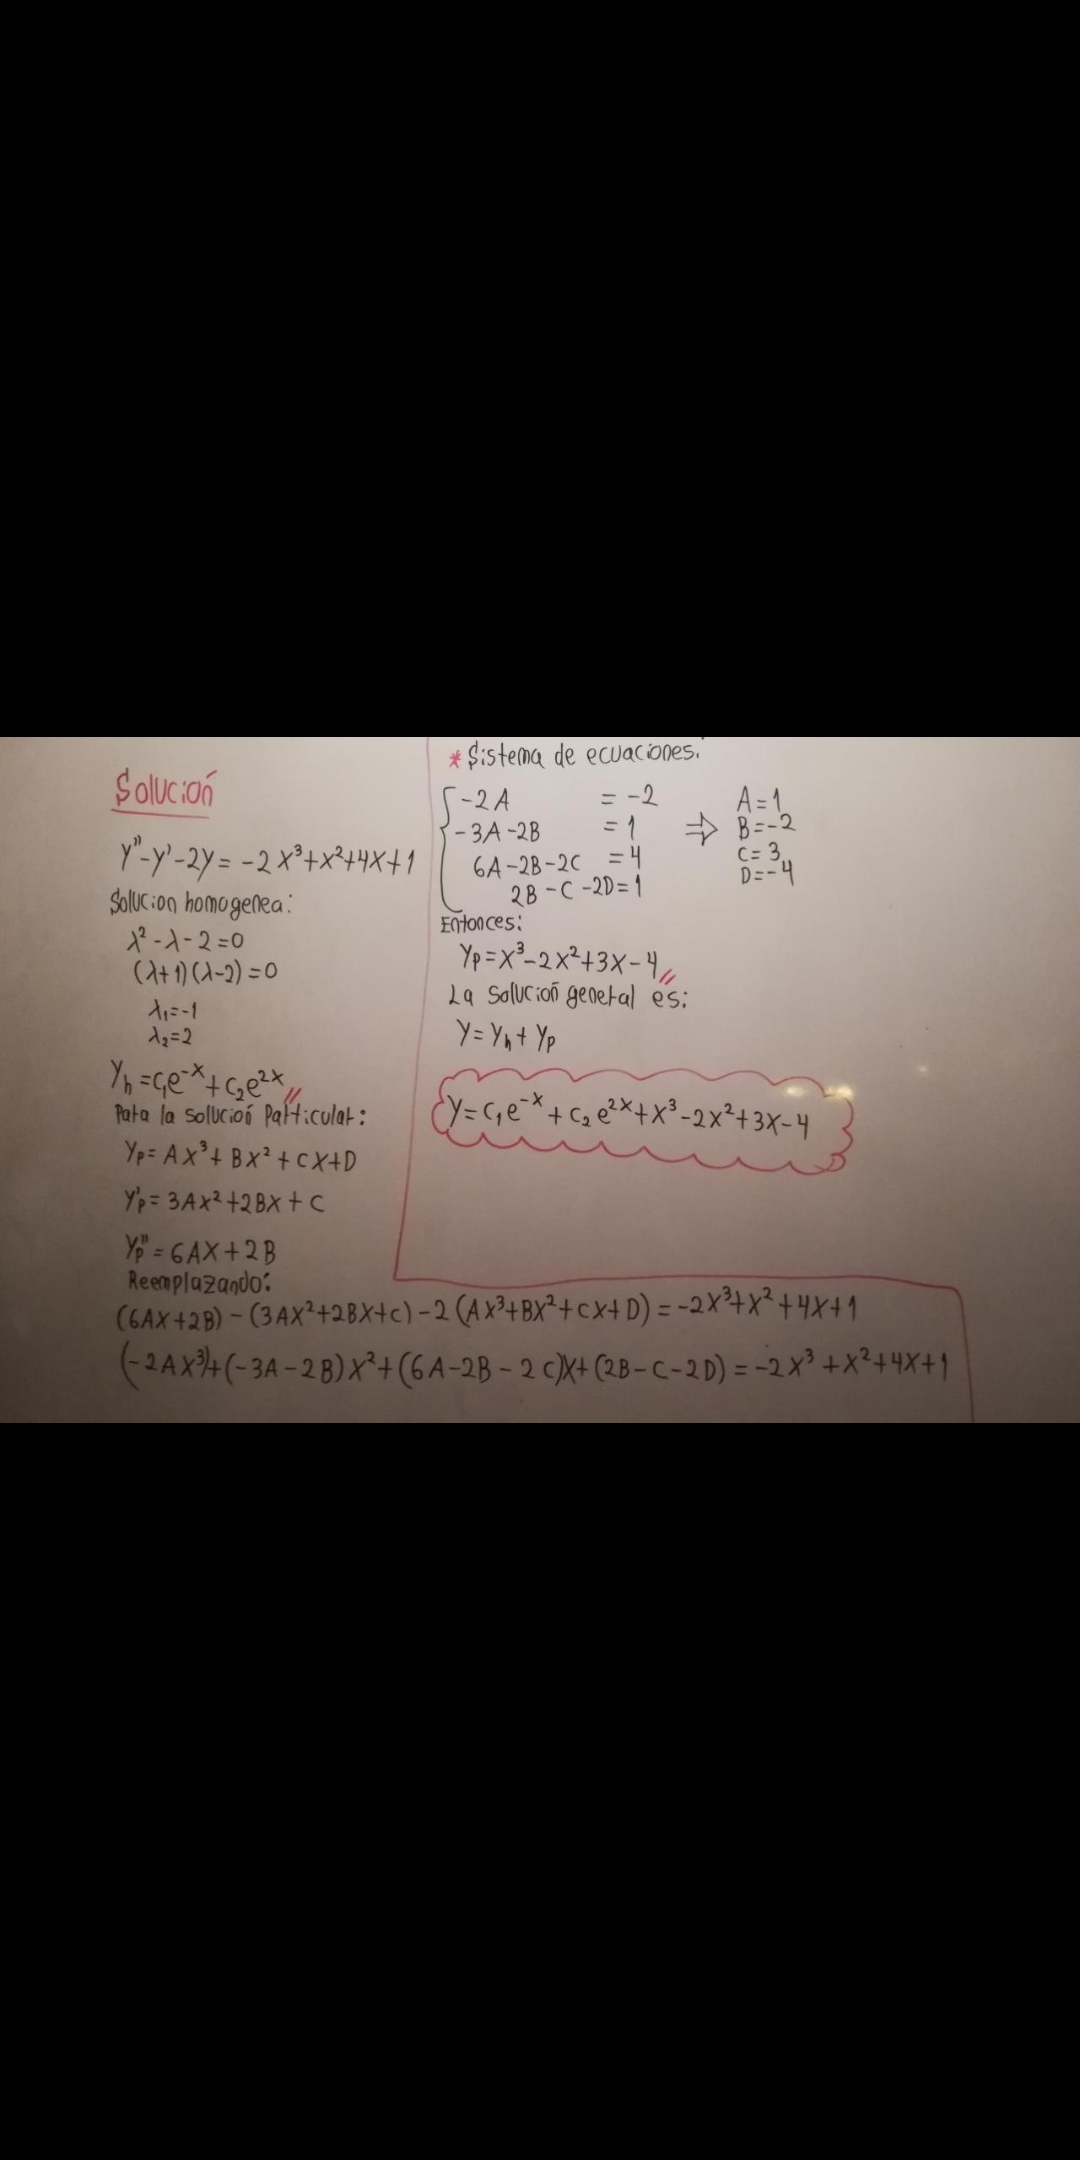 Solución
y''-y'-2y = -2x³+x²+4x+1
Solucion homogenea:
λ²-λ-2=0
(λ+1)(λ-2)=0
λ₁=-1
λ₂=2
yₕ=c₁e⁻ˣ+c₂e²ˣ //
Para la solución Particular:
yp= Ax³+Bx²+cx+D
y'p= 3Ax²+2Bx+c
yp''= 6Ax+2B
Reemplazando:
(6Ax+2B)-(3Ax²+2Bx+c)-2(Ax³+Bx²+cx+D)=-2x³+x²+4x+1
(-2Ax³)+(-3A-2B)x²+(6A-2B-2c)x+(2B-c-2D)=-2x³+x²+4x+1
* Sistema de ecuaciones:
-2A = -2 ⇒ A=1
-3A-2B = 1 B=-2
6A-2B-2c = 4 c=3
2B-c-2D=1 D=-4
Entonces:
yp=x³-2x²+3x-4 //
La solución general es:
y=yₕ+yp
y=c₁e⁻ˣ+c₂e²ˣ+x³-2x²+3x-4